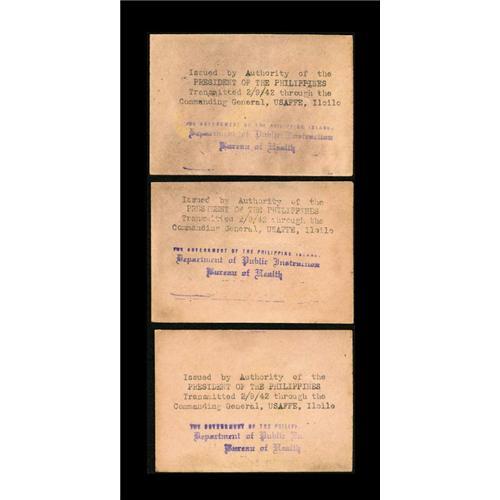 Issued by Authority of the
PRESIDENT OF THE PHILIPPINES
Transmitted 2/9/42 through the
Commanding General, USAFFE, Iloilo
THE GOVERNMENT OF THE PHILIPPINE ISLANDS
Department of Public Instruction
Bureau of Health
Issued by Authority of the
PRESIDENT OF THE PHILIPPINES
Transmitted 2/9/42 through the
Commanding General, USAFFE, Iloilo
THE GOVERNMENT OF THE PHILIPPINE ISLANDS
Department of Public Instruction
Bureau of Health
Issued by Authority of the
PRESIDENT OF THE PHILIPPINES
Transmitted 2/9/42 through the
Commanding General, USAFFE, Iloilo
THE GOVERNMENT OF THE PHILIPPI
Department of Public In
Bureau of Health